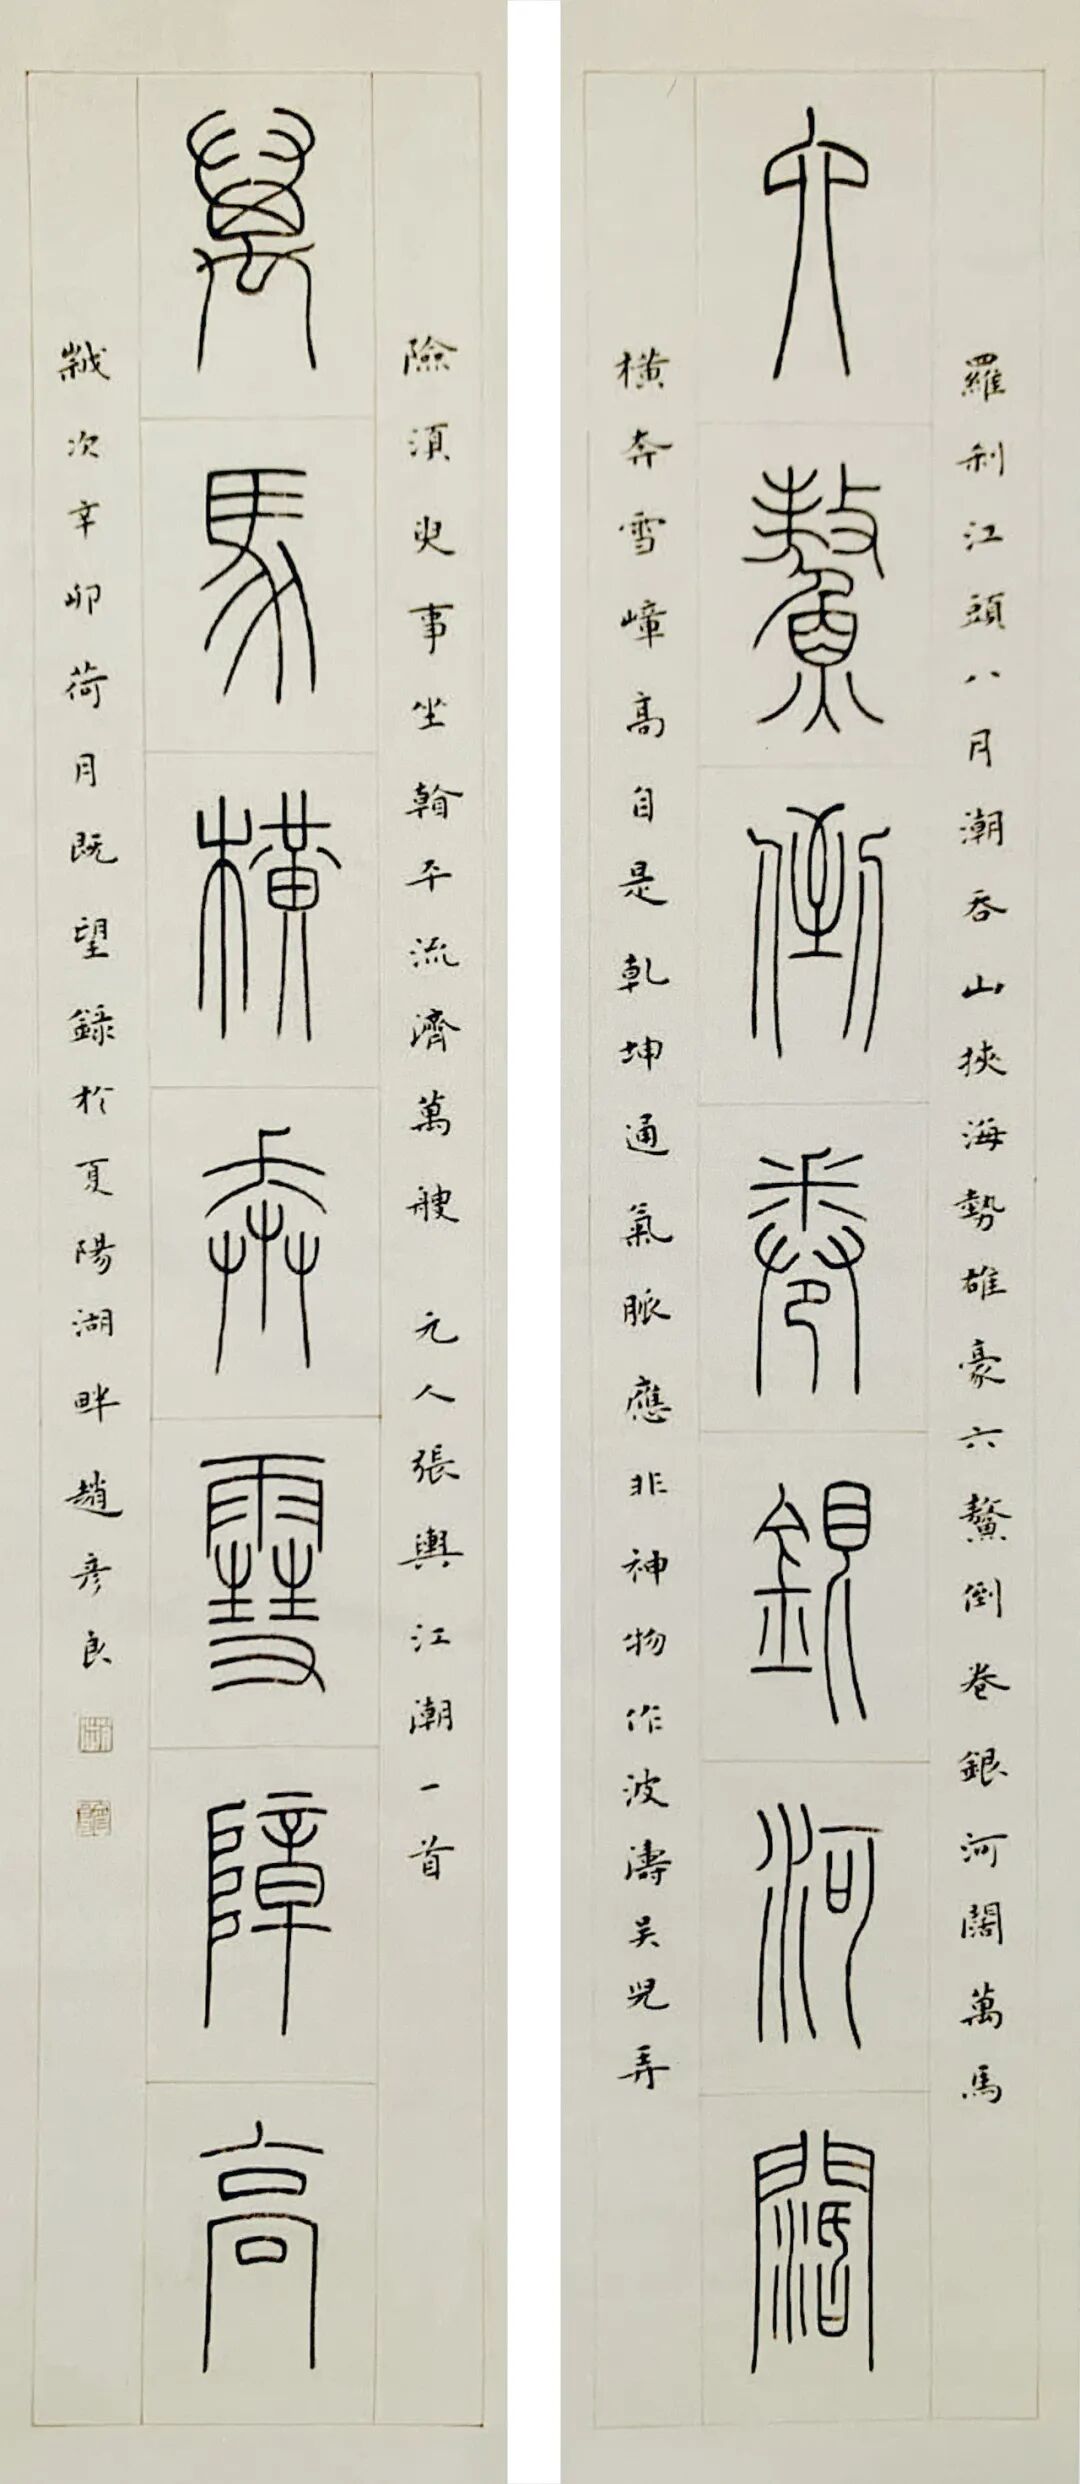 六鰲倒卷銀河闊
羅刹江頭八月潮吞山挾海勢雄豪六鰲倒卷銀河闊萬馬
橫奔雪嶂高自是乾坤通氣脈應非神物作波濤吴兒弄
萬馬橫奔雪障高
險須臾事坐翰平流濟萬艘 元人張輿江潮一首
歲次辛卯荷月既望錄於夏陽湖畔趙彥良